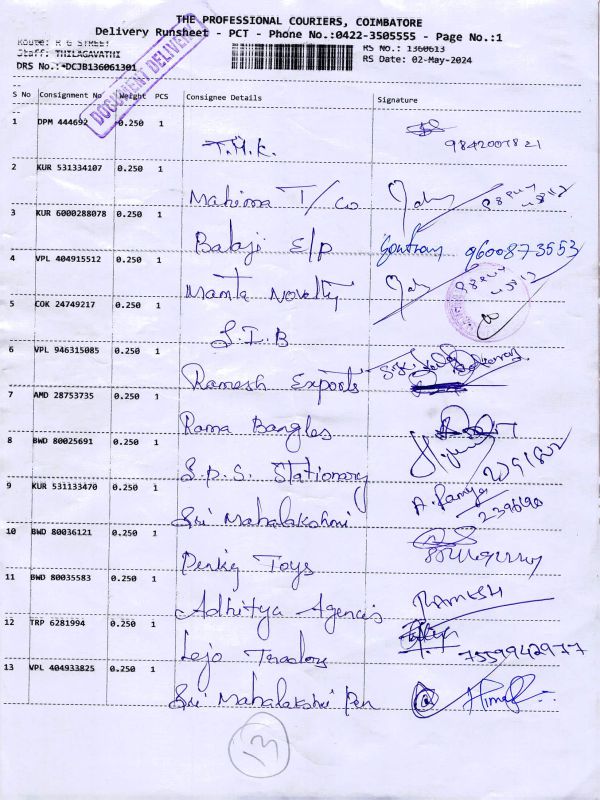 THE PROFESSIONAL COURIERS, COIMBATORE
Delivery Runsheet - PCT - Phone No.:0422-3505555 - Page No.:1
Route: R G STREET
Staff: THILAGAVATHI
DRS No.:*DCJB136061301
RS No.: 1360613
RS Date: 02-May-2024
DOCUMENT DELIVERY
S No Consignment No Weight PCS Consignee Details Signature
1 DPM 444692 0.250 1
T.M.K. 9842007821
2 KUR 531334107 0.250 1
Mahima T/Co
3 KUR 6000288078 0.250 1
Balaji E/P 9600873553
4 VPL 404915512 0.250 1
Mamta Novelty
5 COK 24749217 0.250 1
S.I.B
6 VPL 946315085 0.250 1
Ramesh Exports
7 AMD 28753735 0.250 1
Rama Bangles
8 BWD 80025691 0.250 1
S.P.S. Stationary
9 KUR 531133470 0.250 1
Sri Mahalakshmi A. Ramya
10 BWD 80036121 0.250 1
Penkij Toys
11 BWD 80035583 0.250 1
Adhitya Agencies RAMESH
12 TRP 6281994 0.250 1
Lejo 7559942977
13 VPL 404933825 0.250 1
Sri Mahalakshi Pen
13